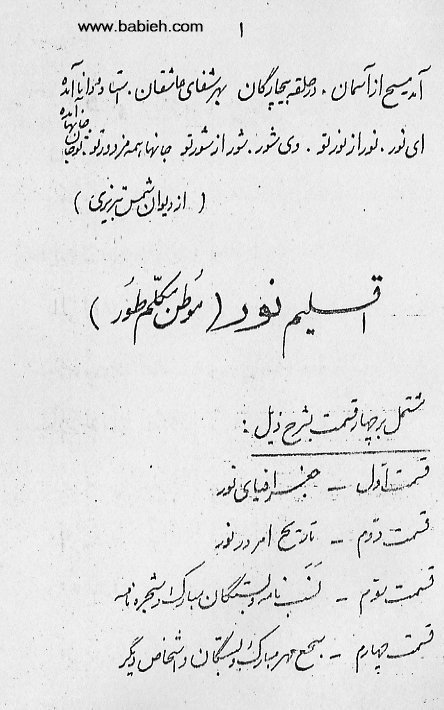 www.babieh.com
۱
آمد مسیح از آسمان . در حلقه بیچارگان بهر شفای عاشقان . استاد و دانا آمده
ای نور . نور از نور تو . وی شور . شور از شور تو جانها همه مزدور تو . تو جان جانها آمده
( از دیوان شمس تبریزی )
اقلیم نور ( موطن مکلّم طور )
مشتمل بر چهار قسمت بشرح ذیل :
قسمت اوّل – جغرافیای نور
قسمت دوّم – تاریخ امر در نور
قسمت سوّم – نسب نامه وابستگان مبارک و شجره نامه
قسمت چهارم – سجع مهر مبارک و وابستگان و اشخاص دیگر